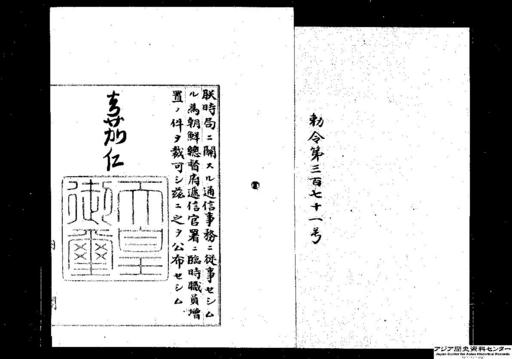 勅令第三百七十一号
朕時局ニ関スル通信事務ニ従事セシム
ル為朝鮮総督府逓信官署ニ臨時職員増
置ノ件ヲ裁可シ玆ニ之ヲ公布セシム
嘉仁
天皇
御璽
アジア歴史資料センター
Japan Center for Asian Historical Records